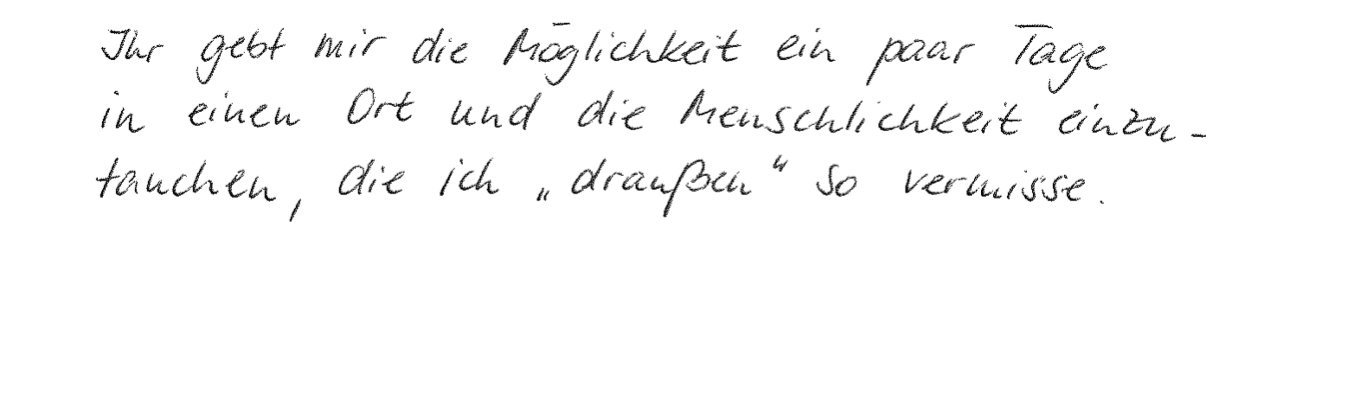 Ihr gebt mir die Möglichkeit ein paar Tage
in einen Ort und die Menschlichkeit einzu-
tauchen, die ich „draußen“ so vermisse.